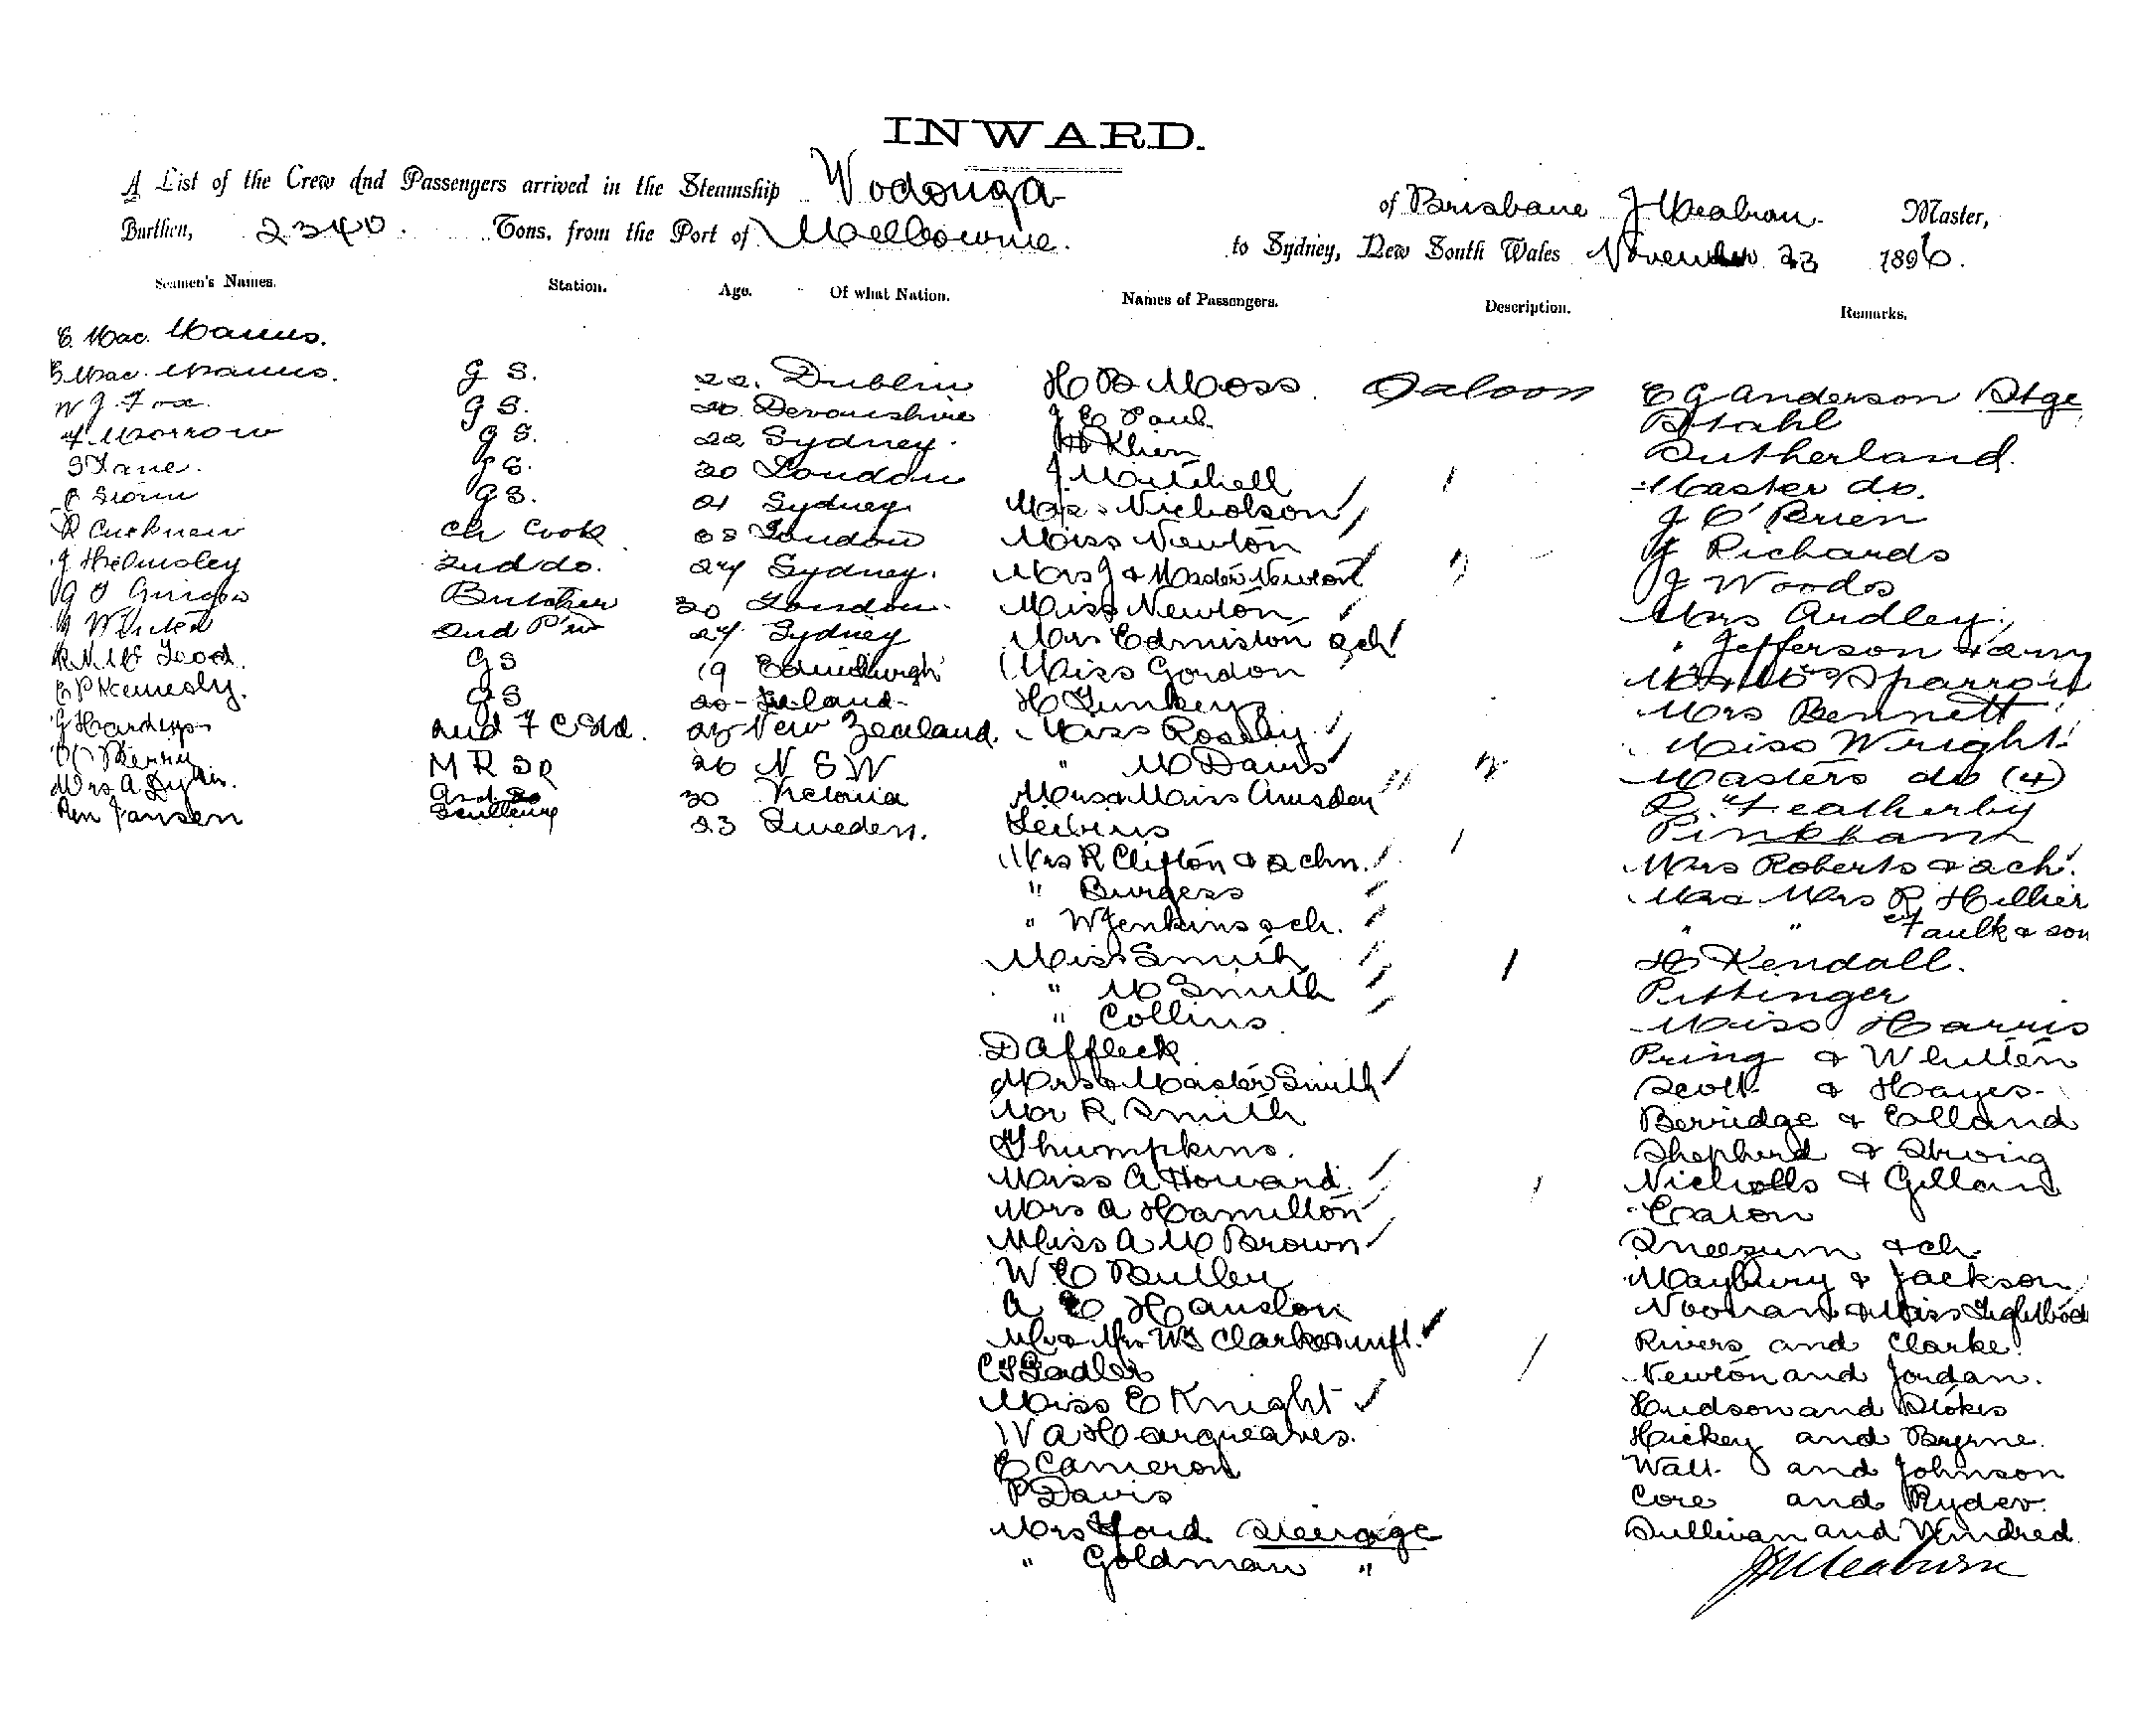 INWARD.
A List of the Crew and Passengers arrived in the Steamship Wodonga of Brisbane J Meaburn Master,
Burthen, 2340. Tons, from the Port of Melbourne. to Sydney, New South Wales November 23 1896.
Seamen's Names. Station. Age. Of what Nation. Names of Passengers. Description. Remarks.
E. Mac. Manus.
E Mac. Manus. G S. 22. Dublin H B Moss. Saloon E G Anderson Stge
W J. Fox. G S. 20. Devonshire J E Paul. Stahl
Morrow G S. 22 Sydney. Klien Sutherland.
S Lane. G S. 20 London J Mitchell Master do.
G S. 21 Sydney. Nicholson J O'Brien
Ch Cook London Miss Newton J Richards
J Helmsley 2nd do. 24 Sydney. Mrs J & Master Newton J Woods
Butcher 30 London. Miss Newton Mrs Ardley.
2nd 24. Sydney Mrs Edmiston & ch " Jefferson
G S 19 Edinburgh Miss Gordon Sparrow
E P Kennedy. G S 20 - Ireland - H Mrs Bennett
2nd F C Std. 25 New Zealand. Miss Rossby Miss Wright
Berry M R Sp 26 N S W " M Davis Masters do (4)
Mrs A. 30 Victoria Mrs & Miss Amsden R. Featherby
Jansen Scullery 23 Sweden. Pinkham
Mrs R Clifton & 2 chn. Mrs Roberts & 2 ch.
" Burgess Mr & Mrs R Hillier
" W Jenkins & ch. " " Faulk & son
Miss Smith H Kendall.
" M Smith Pittinger
" Collins Miss Harris
D Affleck Pring & Whitten
Mrs & Master Smith Scott & Hayes.
Mr R Smith Berridge & Elland
Thumpkins. Shepherd & Strong
Miss A Howard. Nicholls & Gillan
Mrs A Hamilton Eaton
Miss A M Brown Sneezum & ch.
W E Butler Maybury & Jackson
A E Hanston Noonan & Miss Lightbod
Mr & Mrs Wm Clarke & inft. Rivers and Clarke.
Sadler Newton and Jordan.
Miss E Knight Hudson and Stokes
W A Hargreaves. Hickey and Byrne.
E Cameron Wall and Johnson
P Davis Core and Ryder.
Mrs Ford Steerage Sullivan and Kindred
" Goldman "
J Meaburn